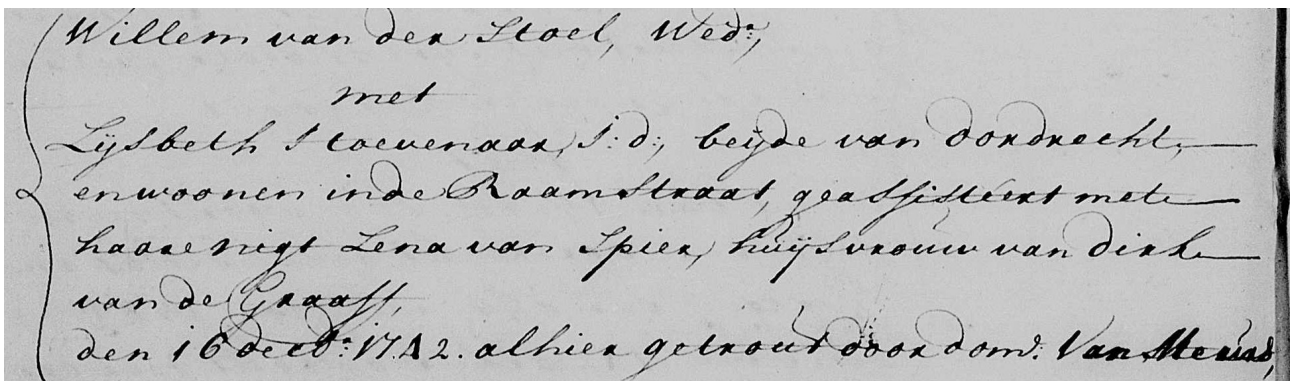 Willem van der Stoel, Wedr,
met
Lijsbeth Stoevenaar, J: d:, beijde van dordrecht,
en woonen in de Raamstraat, geassisteert met
haare nigt Lena van Spier, huijsvrouw van dirk
van de Graaff,
den 16 decbr: 1742. alhier getrout door dom: Van Meurs,